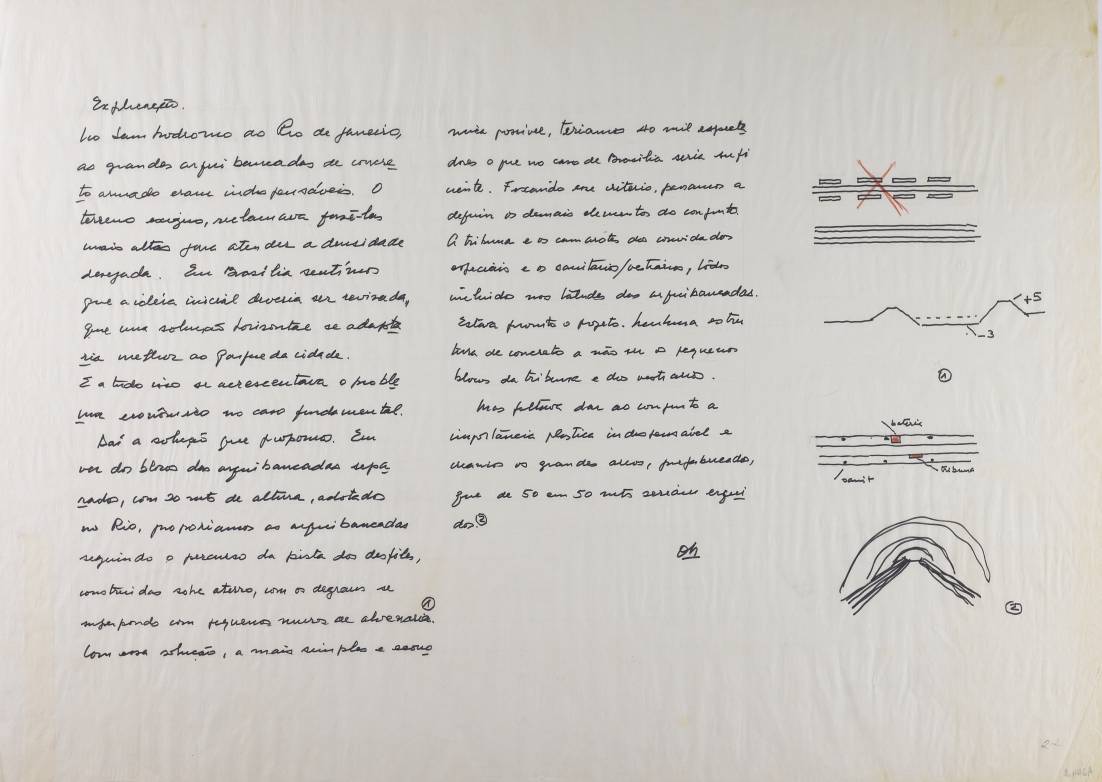 Explicação.
No Sambodromo do Rio de Janeiro,
as grandes arquibancadas de concre
to armado eram indispensáveis. O
terreno exíguo, reclamava fazê-las
mais altas para atender a densidade
desejada. Em Brasília sentimos
que a idéia inicial deveria ser revisada,
que uma solução horizontal se adapta
ria melhor ao Parque da cidade.
E a tudo isso se acrescentava o proble
ma econômico no caso fundamental.
Daí a solução que propomos. Em
vez dos blocos das arquibancadas sepa
rados, com 20 mts de altura, adotado
no Rio, proporiamos as arquibancadas
seguindo o percurso da pista dos desfiles,
construidas sobre aterro, com os degraus se
superpondo com pequenos muros de alvenaria. 1
Com essa solução, a mais simples e econo
mica possivel, teriamos 40 mil especta
dores o que no caso de Brasilia seria sufi
ciente. Fixando esse critério, passamos a
definir os demais elementos do conjunto.
A tribuna e os camarotes dos convidados
especiais e os sanitarios/vestiarios, todos
incluido nos taludes das arquibancadas.
Estava pronto o projeto. Nenhuma estru
tura de concreto a não ser os pequenos
blocos da tribuna e dos vestiarios.
Mas faltava dar ao conjunto a
importância plastica indispensável e
criamos os grandes arcos, prefabricados,
que de 50 em 50 mts seriam ergui
dos. 2
ON
+5
-3
1
bateria
tribuna
sanit
2